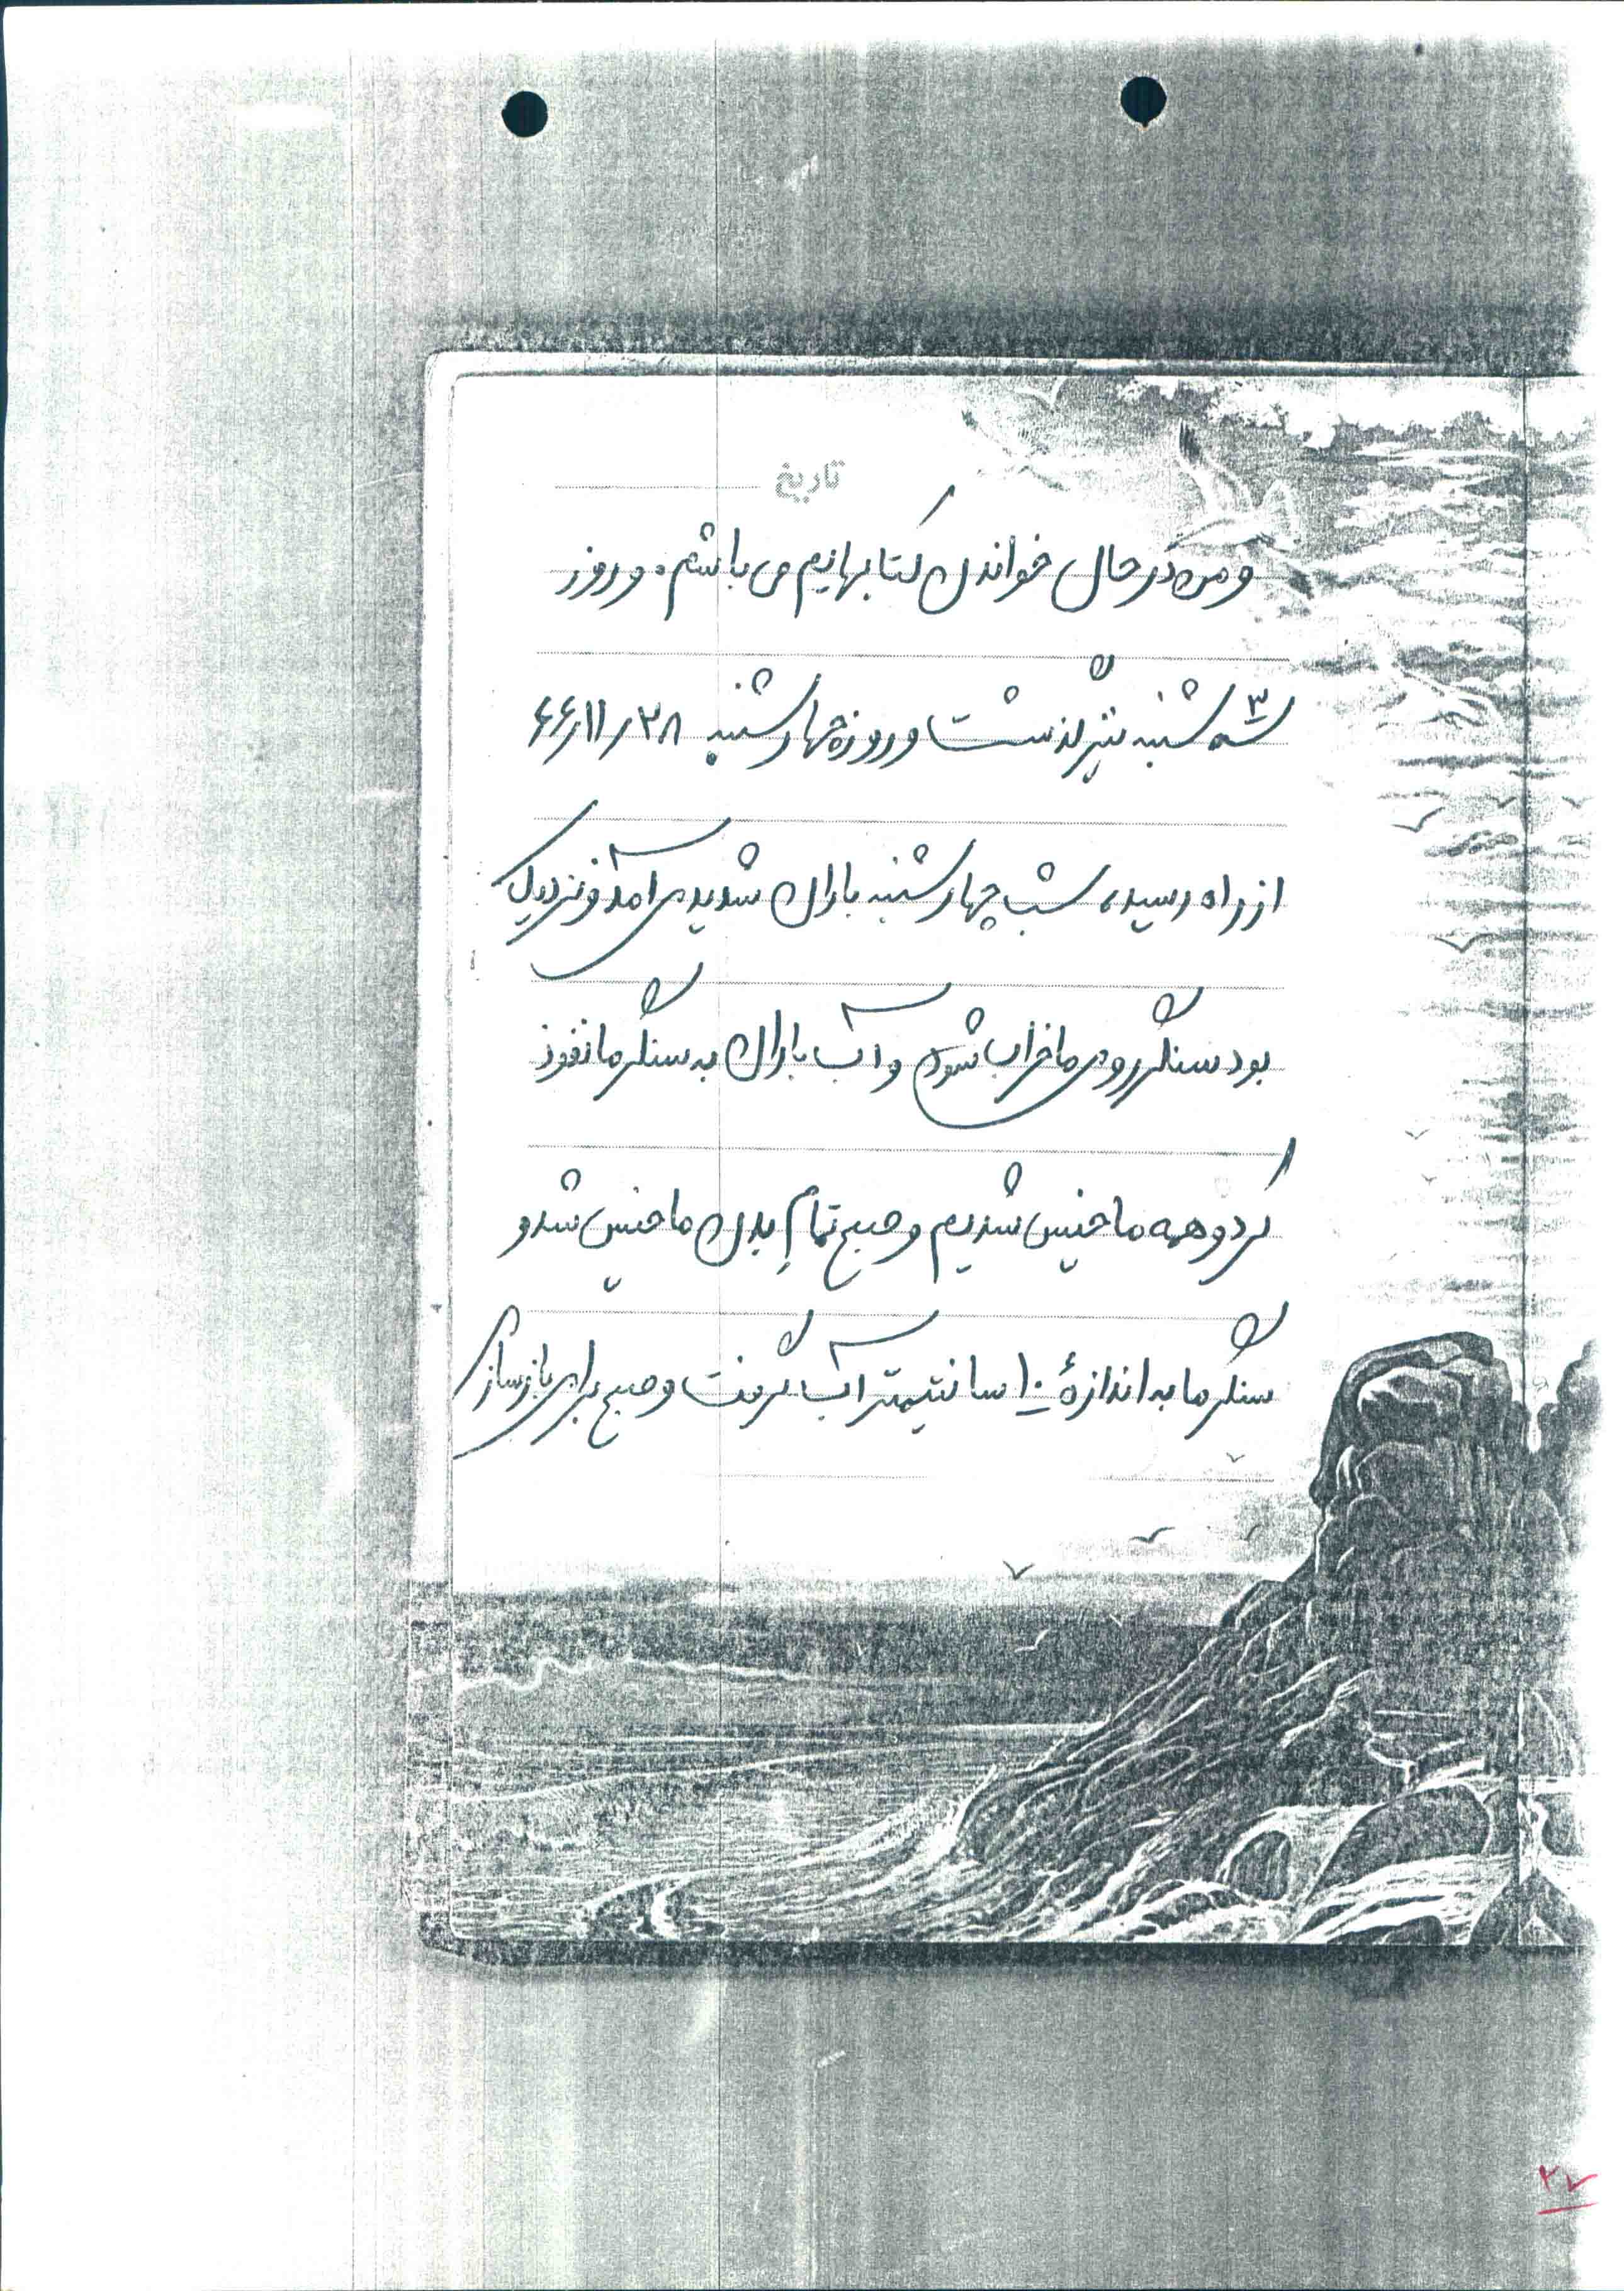 تاریخ
و من در حال خواندن کتابهایم می باشم. و روز
سه شنبه نیز گذشت و روز چهارشنبه ۶۶/۱۱/۲۸
از راه رسید، شب چهارشنبه باران شدیدی آمد و نزدیک
بود سنگر روی ما خراب شود و آب باران به سنگر ما نفوذ
کرد و همه ما خیس شدیم و صبح تمام بدن ما خیس شد و
سنگر ما به اندازهٔ ۱۰ سانتیمتر آب گرفت و صبح برای بازساز
۲۷